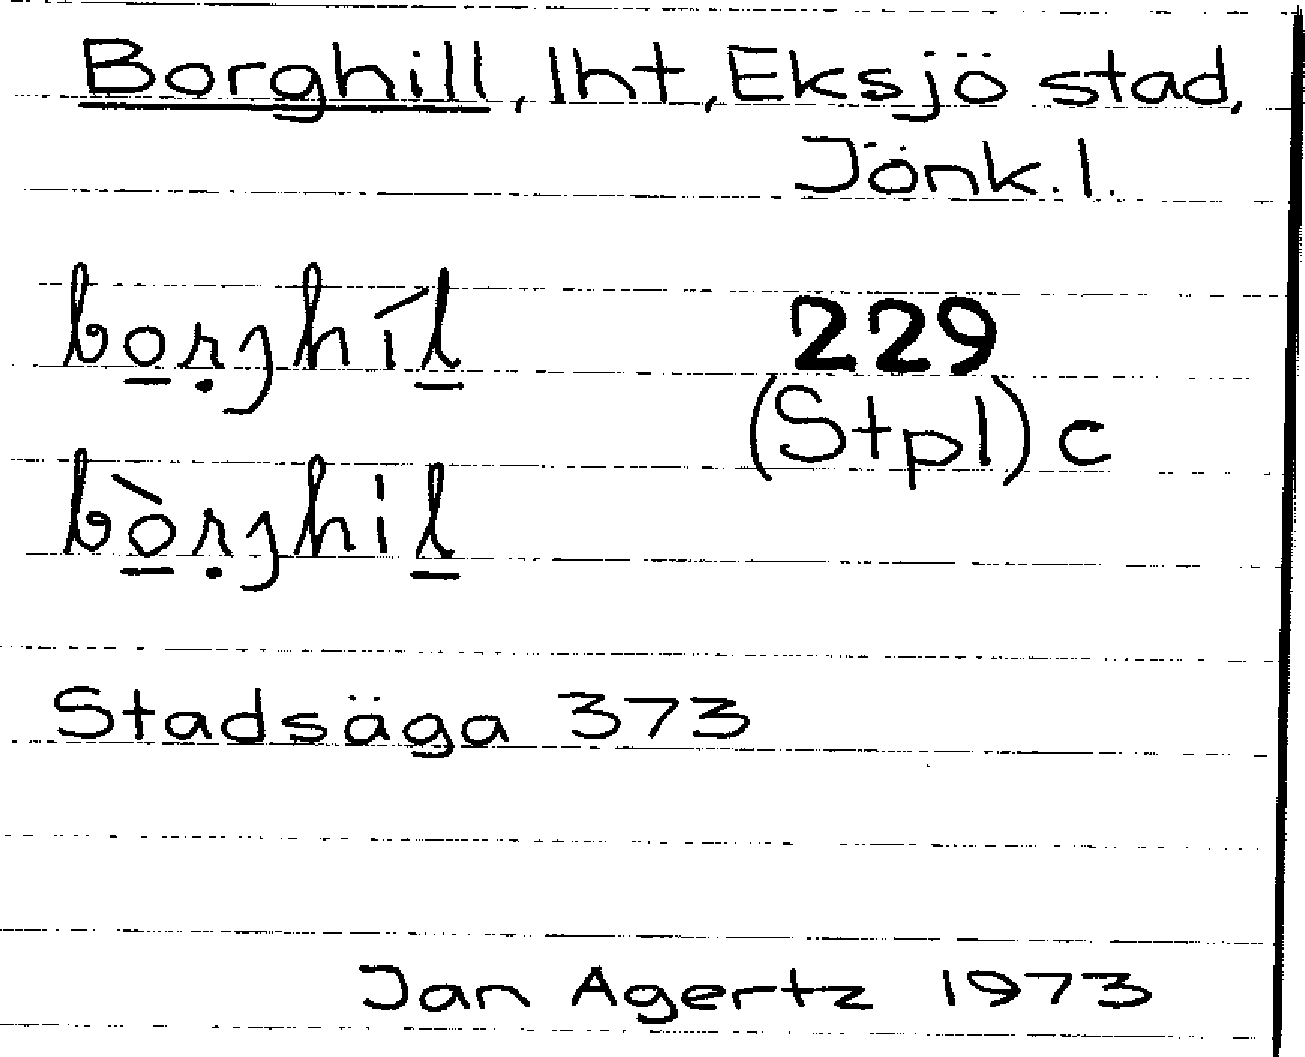 Borghill, lht, Eksjö stad,
Jönk. l.
bo̲ṛjhíl̲
229
(Stpl) c
bò̲ṛjhil̲
Stadsäga 373
Jan Agertz 1973